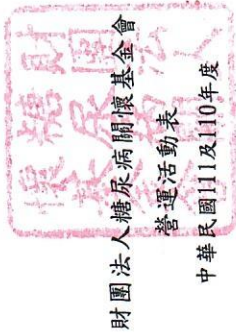 財團法人糖尿病關懷基金會
營運活動表
中華民國111及110年度